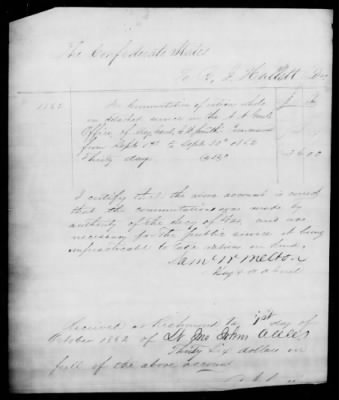 The Confederate States
To V. J. Hallett Dr
1862
For Commutation of rations while
on detached service in the A. A. Genl's
Office, of Maj Genl G. W. Smith
from Sept 1st to Sept 30th 1862
Thirty days 36 00
I certify that the above account is correct
that the commutation was made by
authority of the Secy of War, and was
necessary for the public service it being
impracticable to take rations in kind.
Sam W Melton
Maj & A A Genl
Received at Richmond the 1st day of
October 1862 of
Thirty Six dollars in
full of the above account